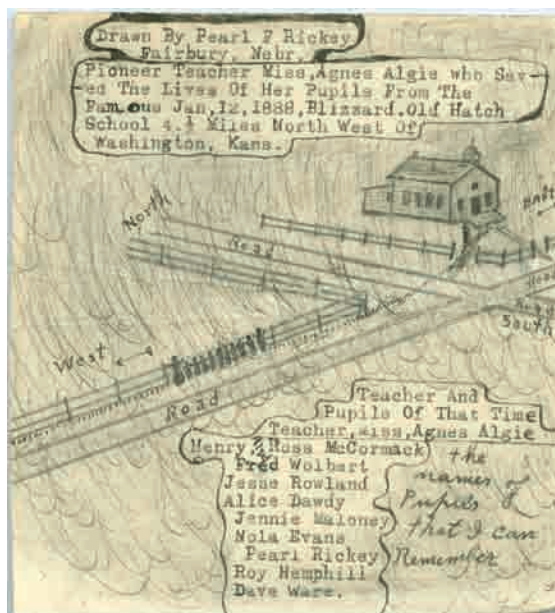 Drawn By Pearl F Rickey
Fairbury, Nebr,
Pioneer Teacher Miss,Agnes Algie who Sav-
ed The Lives Of Her Pupils From The
Famous Jan,12,1888,Blizzard.Old Hatch
School 4.½ Miles North West Of
Washington, Kans.
North
Road
East
Road
South
West
Road
Teacher And
Pupils Of That Time
Teacher,Miss,Agnes Algie
Henry, Ross McCormack
Fred Wolbert
Jesse Rowland
Alice Dawdy
Jennie Maloney
Nola Evans
Pearl Rickey
Roy Hemphill
Dave Ware.
the
names of
Pupils
that I can
Remember